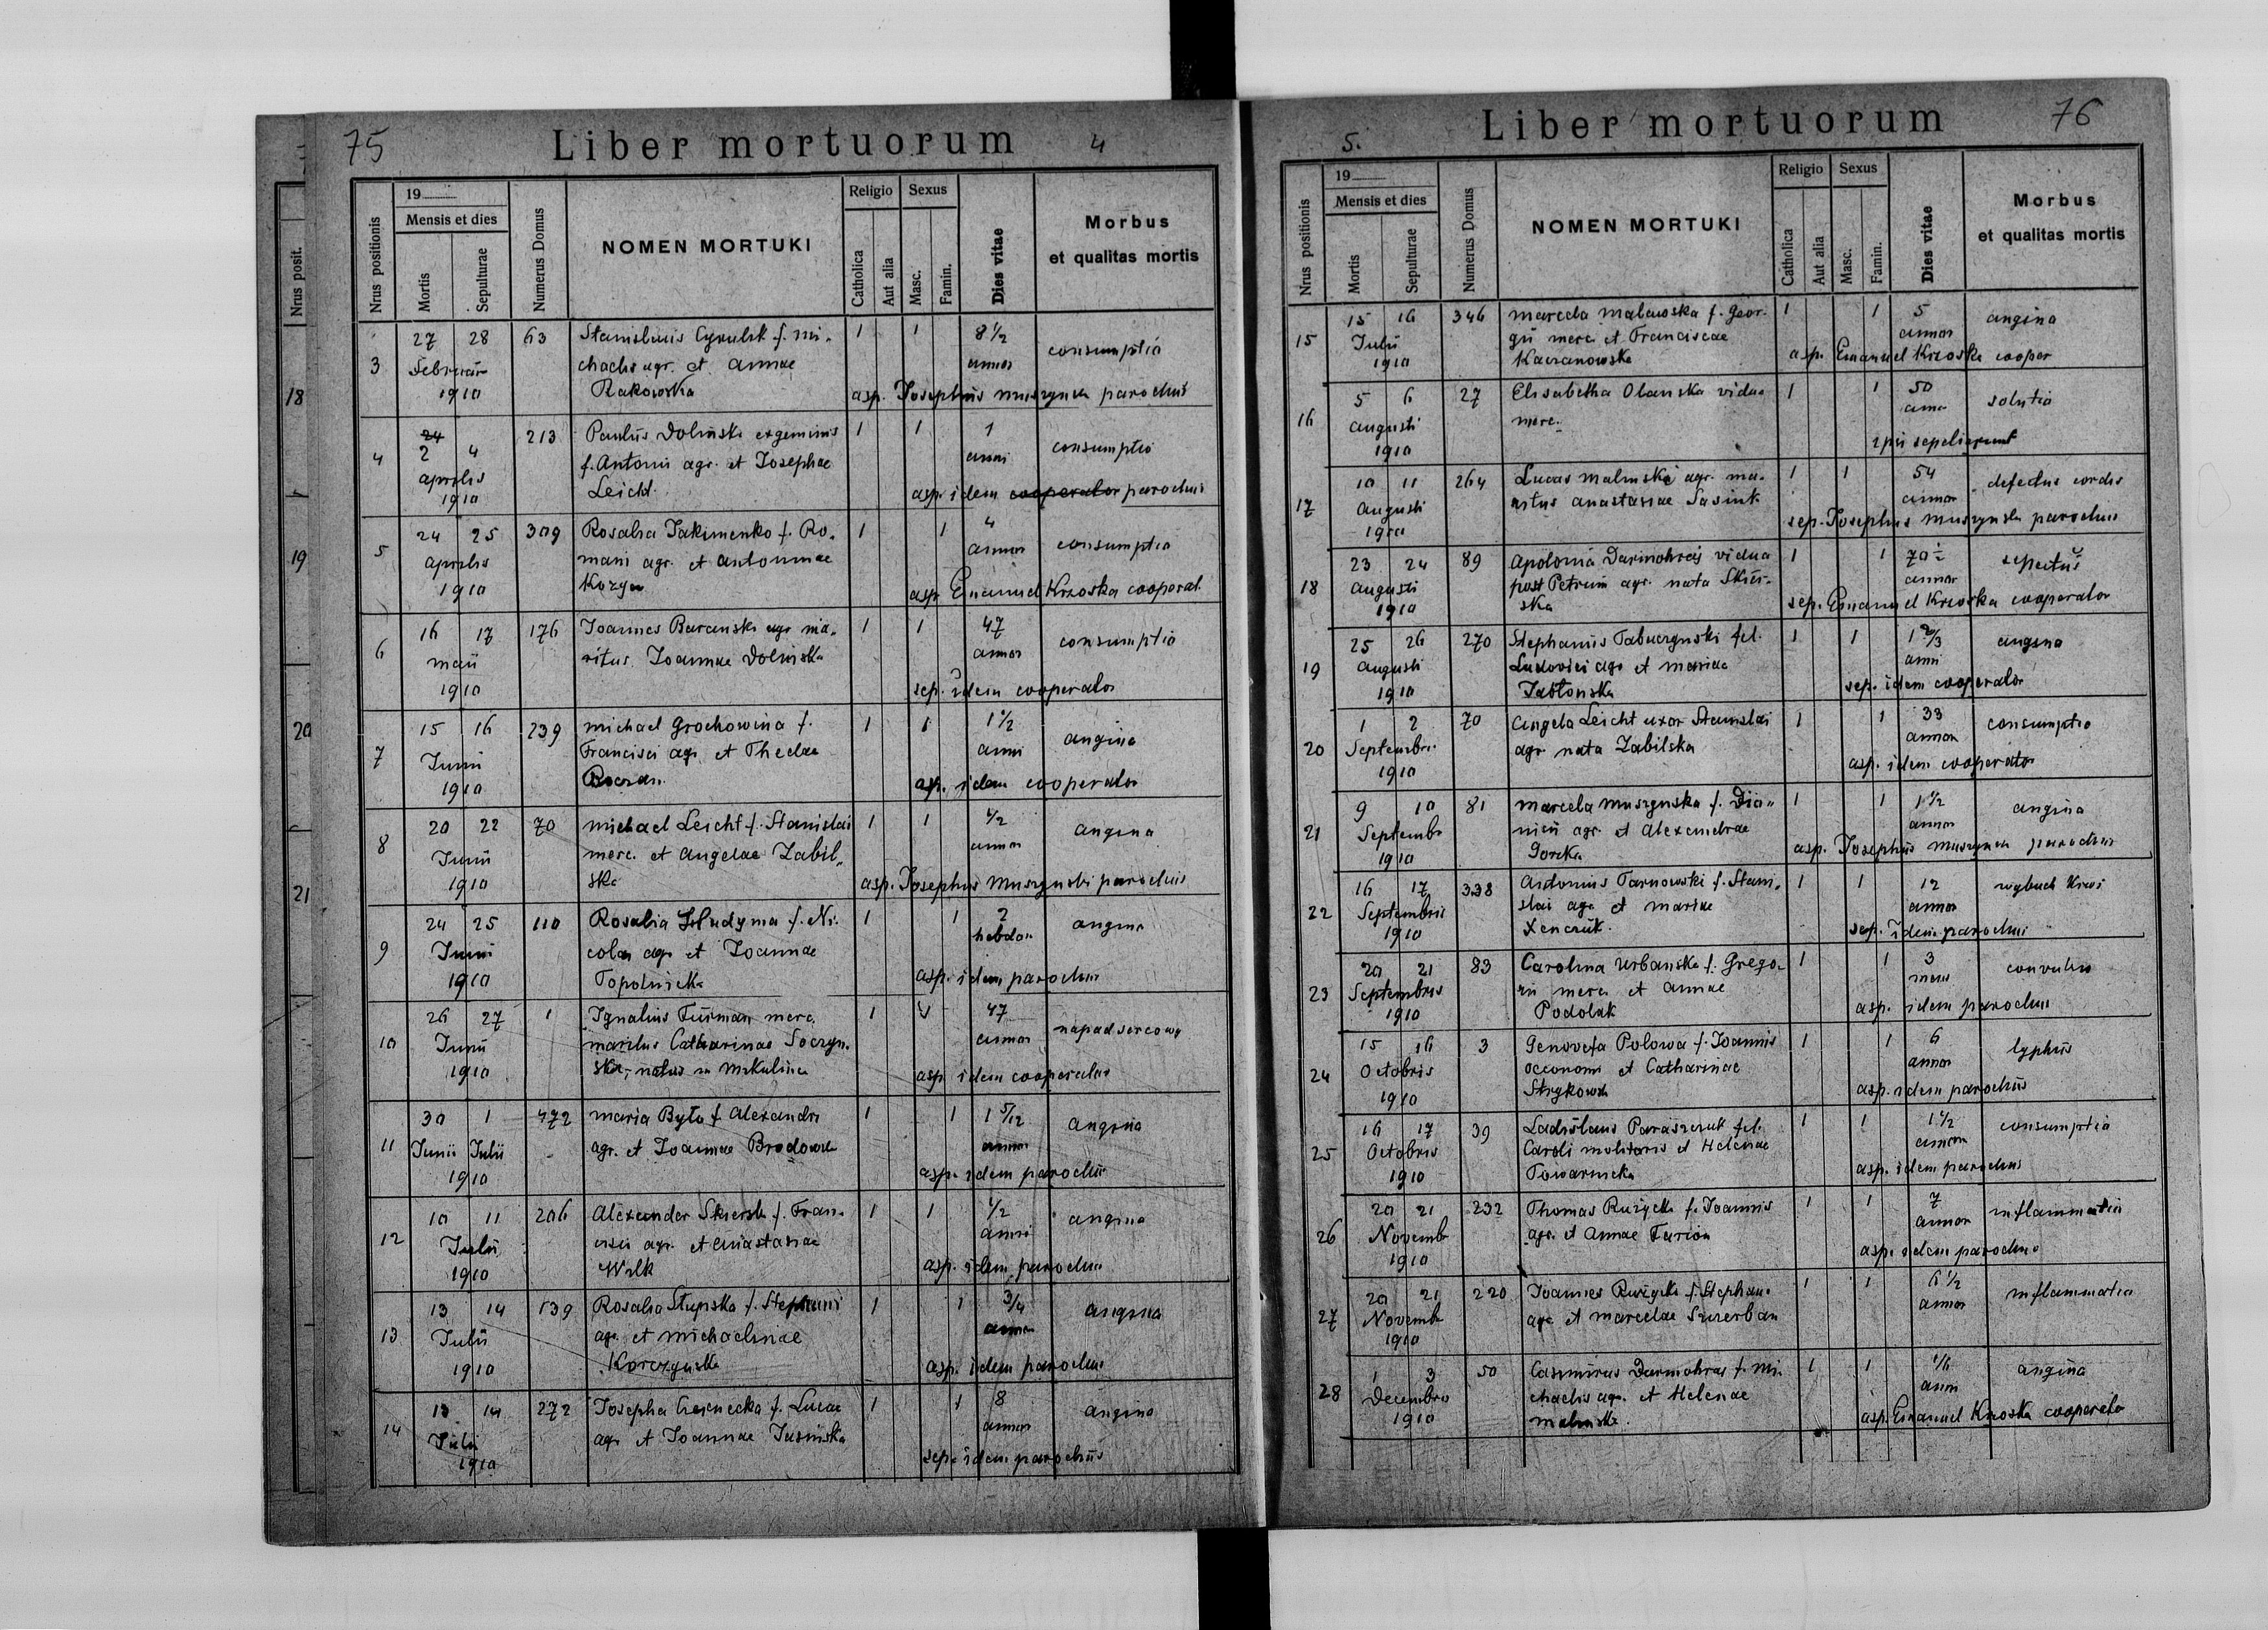 75
Liber mortuorum
4
Nrus positionis
19
Mensis et dies
Mortis
Sepulturae
Numerus Domus
NOMEN MORTUKI
Religio
Catholica
Aut alia
Sexus
Masc.
Famin.
Dies vitae
Morbus
et qualitas mortis
3 27 28 63 Stanislaus f. Mi- 1 1 8 1/2 consumptio
chaelis agr. et Annae annor
1910 Rakowska asp. Josephus Muszynski parochus
4 2 4 213 Paulus Dolinski exgeminis 1 1 1 consumptio
aprilis f. Antonii agr. et Josephae anni
1910 Leicht. asp. idem cooperator parochus
5 24 25 309 Rosalia Jakimenko f. Ro- 1 1 4 consumptio
aprilis mani agr. et Antoninae annor
1910 asp. Emanuel Krzoska cooperat.
6 16 17 176 Joannes Baranski agr. ma- 1 1 47 consumptio
maii ritus Joannae Dolinska annor
1910 sep. idem cooperator
7 15 16 239 Michael Grochowina f. 1 1 1 1/2 angina
Junii Francisci agr. et Theclae anni
1910 asp. idem cooperator
8 20 22 70 Michael Leicht f. Stanislai 1 1 1/2 angina
Junii merc. et Angelae Zabil- annor
1910 ska asp. Josephus Muszynski parochus
9 24 25 110 Rosalia Hudyma f. Ni- 1 1 2 angina
Junii colai agr. et Joannae hebdom
1910 Topolnicka asp. idem parochus
10 26 27 1 Ignatius Furman merc. 1 1 47 napad sercowy
Junii maritus Catharinae Soczyn- annor
1910 ska, natus in Mikulince asp. idem cooperator
11 30 1 472 Maria Byto f. Alexandri 1 1 1 5/12 angina
Junii Julii agr. et Joannae annor
1910 asp. idem parochus
12 10 11 206 Alexander f. Fran- 1 1 1/2 angina
Julii cisci agr. et Anastasiae anni
1910 Wilk asp. idem parochus
13 13 14 139 Rosalia Stupska f. Stephani 1 1 3/4 angina
Julii agr. et Michaelinae
1910 Korczynska asp. idem parochus
14 13 14 272 Josepha f. Lucae 1 1 8 angina
Julii agr. et Joannae annor
1910 sep. idem parochus
Nrus posit.
18
19
20
21
5.
Liber mortuorum
76
Nrus positionis
19
Mensis et dies
Mortis
Sepulturae
Numerus Domus
NOMEN MORTUKI
Religio
Catholica
Aut alia
Sexus
Masc.
Famin.
Dies vitae
Morbus
et qualitas mortis
15 15 16 346 Marcela Malewska f. Geor- 1 1 5 angina
Julii gii merc. et Franciscae annor
1910 Kaczanowska asp. Emanuel Krzoska cooper
16 5 6 27 Elisabetha Olanska vidua 1 1 50 solutio
augusti merc.
1910 ipsi sepelierunt
17 10 11 264 Lucas Malinski agr. ma- 1 1 54 defectus cordis
augusti ritus Anastasiae annor
1910 sep. Josephus Muszynski parochus
18 23 24 89 Apolonia Darmohraj vidua 1 1 70
augusti post Petrum agr. nata annor
1910 ska sep. Emanuel Krzoska cooperator
19 25 26 270 Stephanus Tabuczynski fil. 1 1 1 2/3 angina
augusti Ludovici agr. et Mariae anni
1910 Jabłonska sep. idem cooperator
20 1 2 70 Angela Leicht uxor Stanislai 1 1 33 consumptio
Septembris agr. nata Zabilska annor
1910 asp. idem cooperator
21 9 10 81 Marcela Muszynska f. Dio- 1 1 1 1/2 angina
Septembr nisii agr. et Alexandrae annor
1910 Gorska asp. Josephus Muszynski parochus
22 16 17 338 Antonius Tarnowski f. Stani- 1 1 12 wybuch krwi
Septembris slai agr. et Mariae annor
1910 sep. idem parochus
23 20 21 83 Carolina Urbanska f. Grego- 1 1 3 convulsio
Septembris rii merc. et Annae mens
1910 Podolak asp. idem parochus
24 15 16 3 Genovefa Polowa f. Joannis 1 1 6 typhus
Octobris oeconomi et Catharinae annor
1910 Strykowska asp. idem parochus
25 16 17 39 Ladislaus Paraszczuk fil. 1 1 1 1/2 consumptio
Octobris Caroli molitoris et Helenae annor
1910 Towarnicka asp. idem parochus
26 20 21 232 Thomas Rużycki f. Joannis 1 1 7 inflammatio
Novembr agr. et Annae annor
1910 asp. idem parochus
27 20 21 220 Joannes Rużycki f. Stephani 1 1 6 1/2 inflammatio
Novembr agr. et Marcelae Szczerban annor
1910
28 1 3 50 Casimirus Darmohraj f. Mi- 1 1 1/6 angina
Decembris chaelis agr. et Helenae anni
1910 Malinska. asp. Emanuel Krzoska cooperator